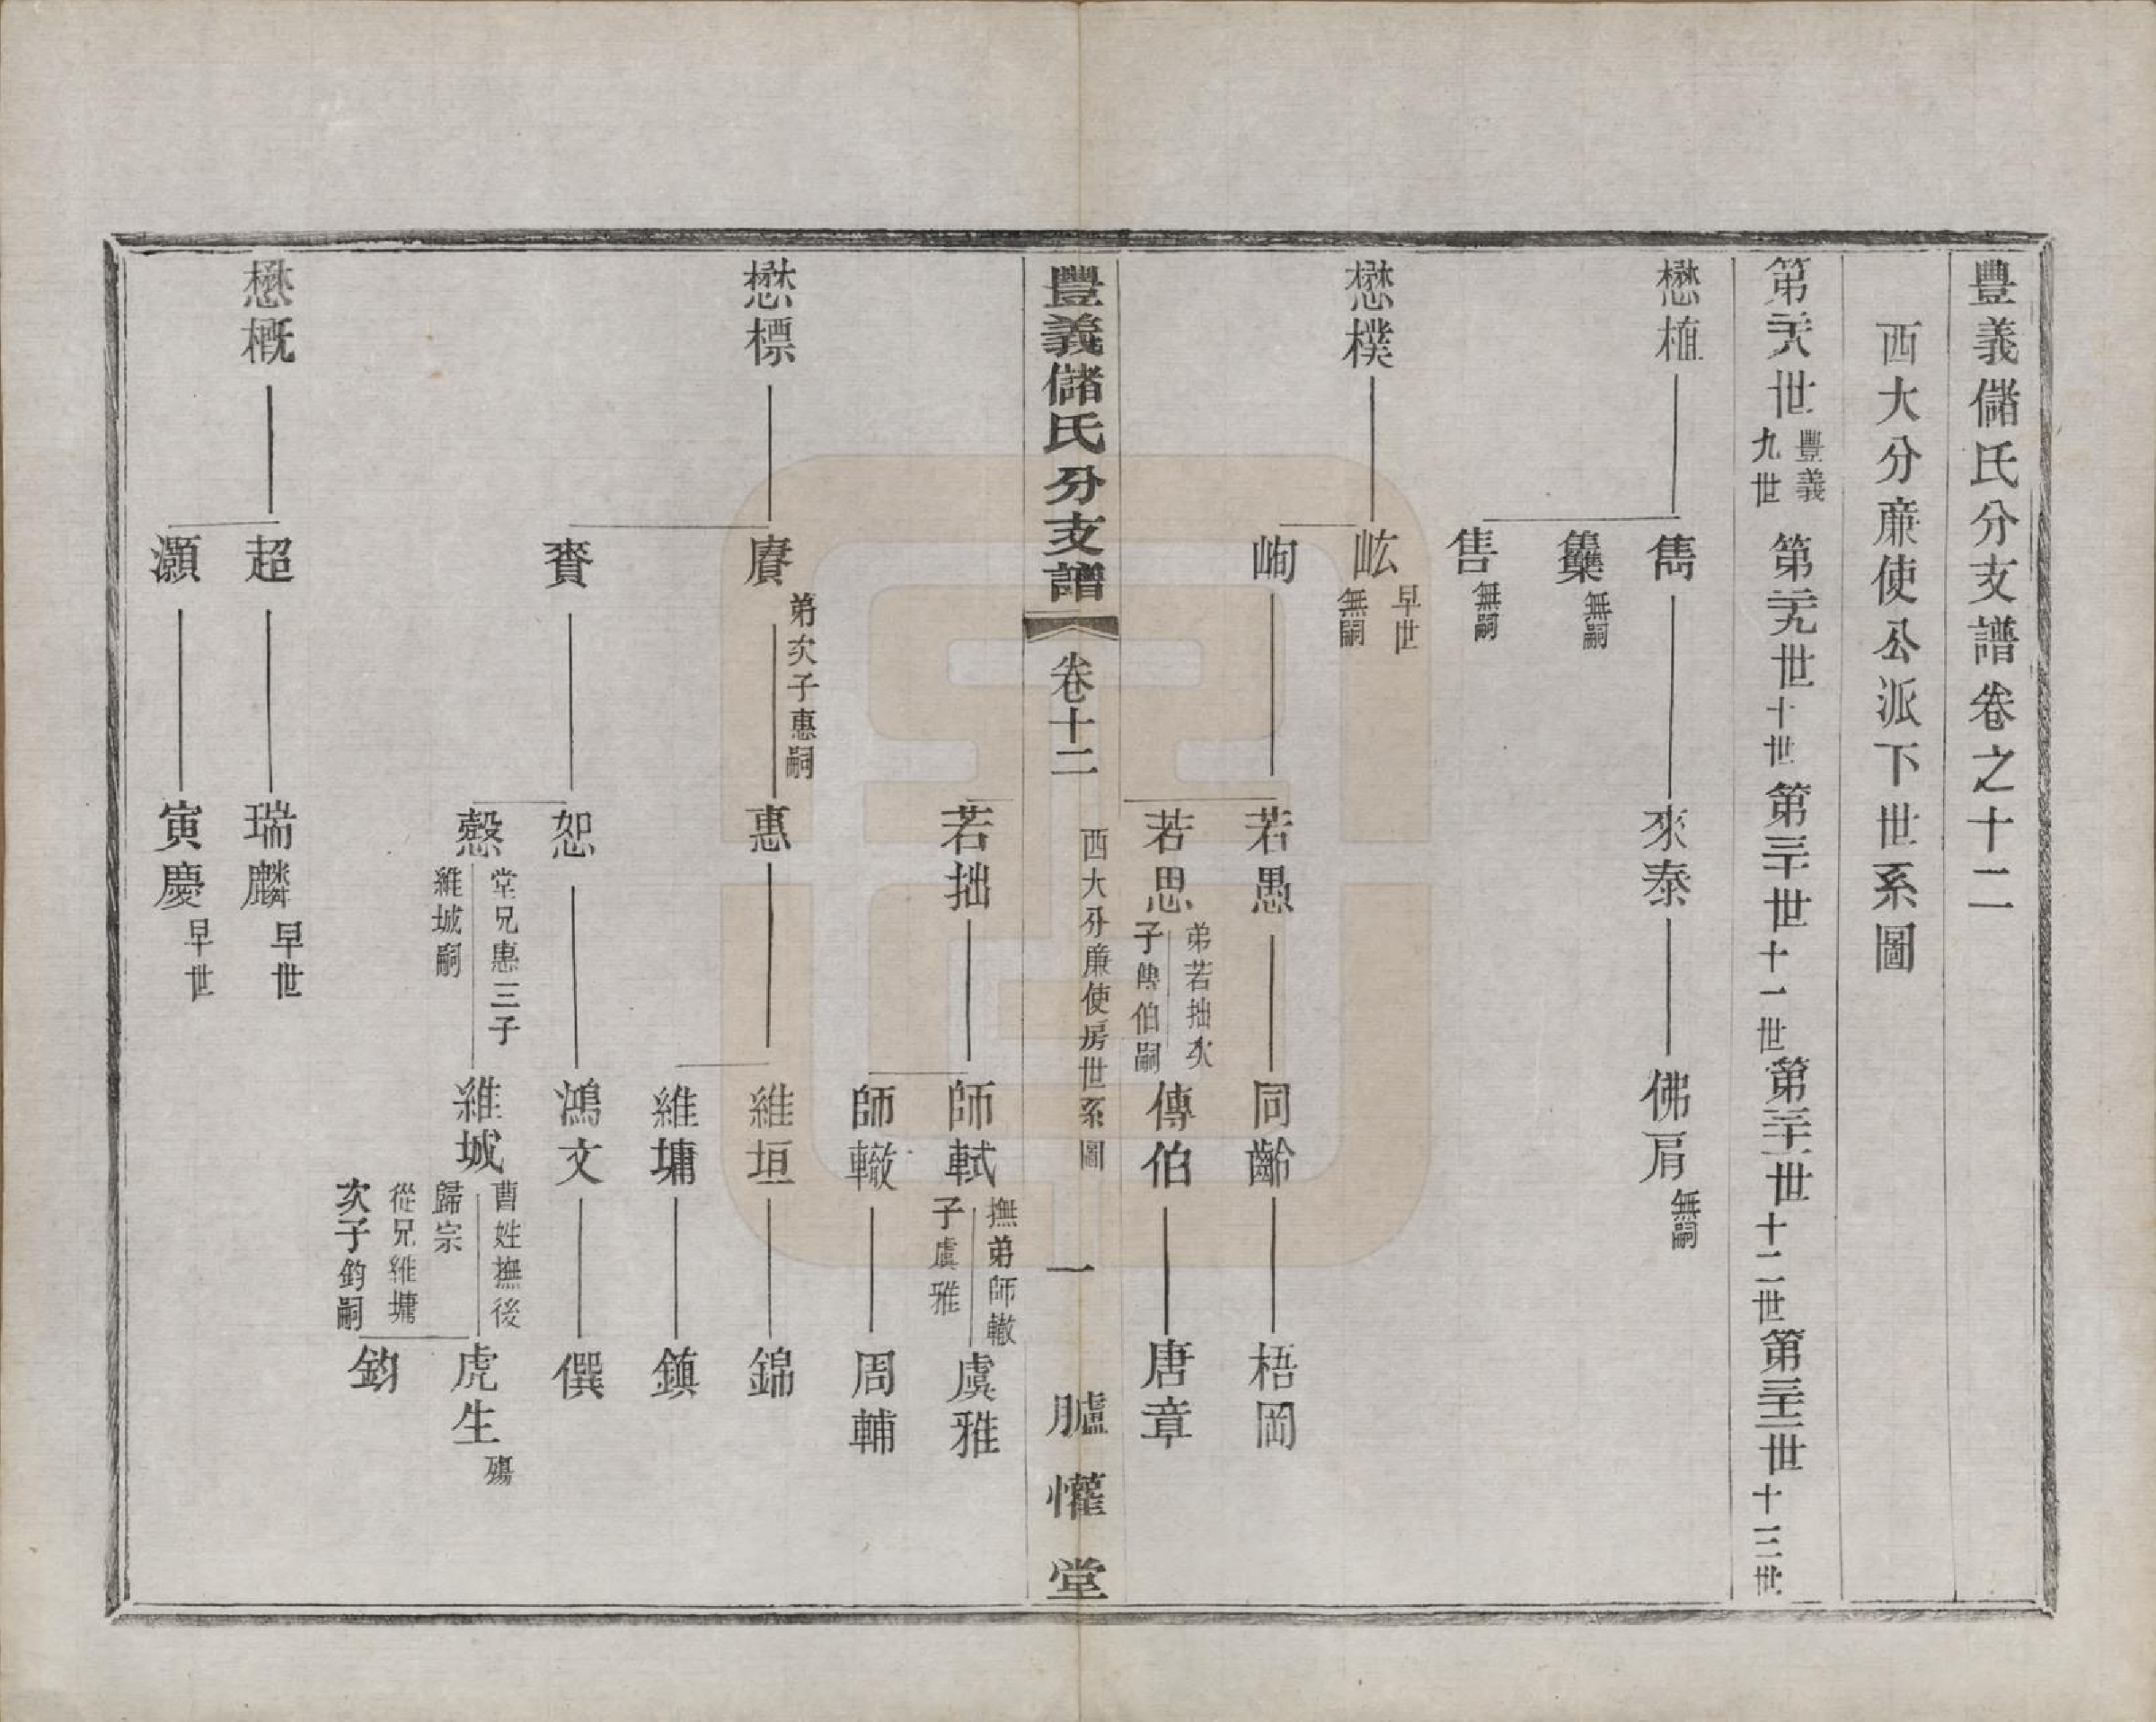 豐義儲氏分支譜卷之十二
西大分廉使公派下世系圖
第二十八世豐義九世
第二十九世十世
第三十世十一世
第三十一世十二世
第三十二世十三世
懋植
雋
來泰
佛肩無嗣
雧無嗣
售無嗣
懋樸
㟅早世無嗣
峋
若愚
同齡
梧岡
若思弟若拙次子傳伯嗣
傳伯
唐章
豐義儲氏分支譜
卷十二
西大分廉使房世系圖
一
臚懽堂
若拙
師軾撫弟師轍子虞雅
虞雅
師轍
周輔
懋標
賡弟次子惠嗣
惠
維垣
錦
維墉
鎮
賚
恕
鴻文
僎
慤堂兄惠三子維城嗣
維城曹姓撫後歸宗
從兄維墉次子鈞嗣
虎生殤
鈞
懋概
超
瑞麟早世
灝
寅慶早世